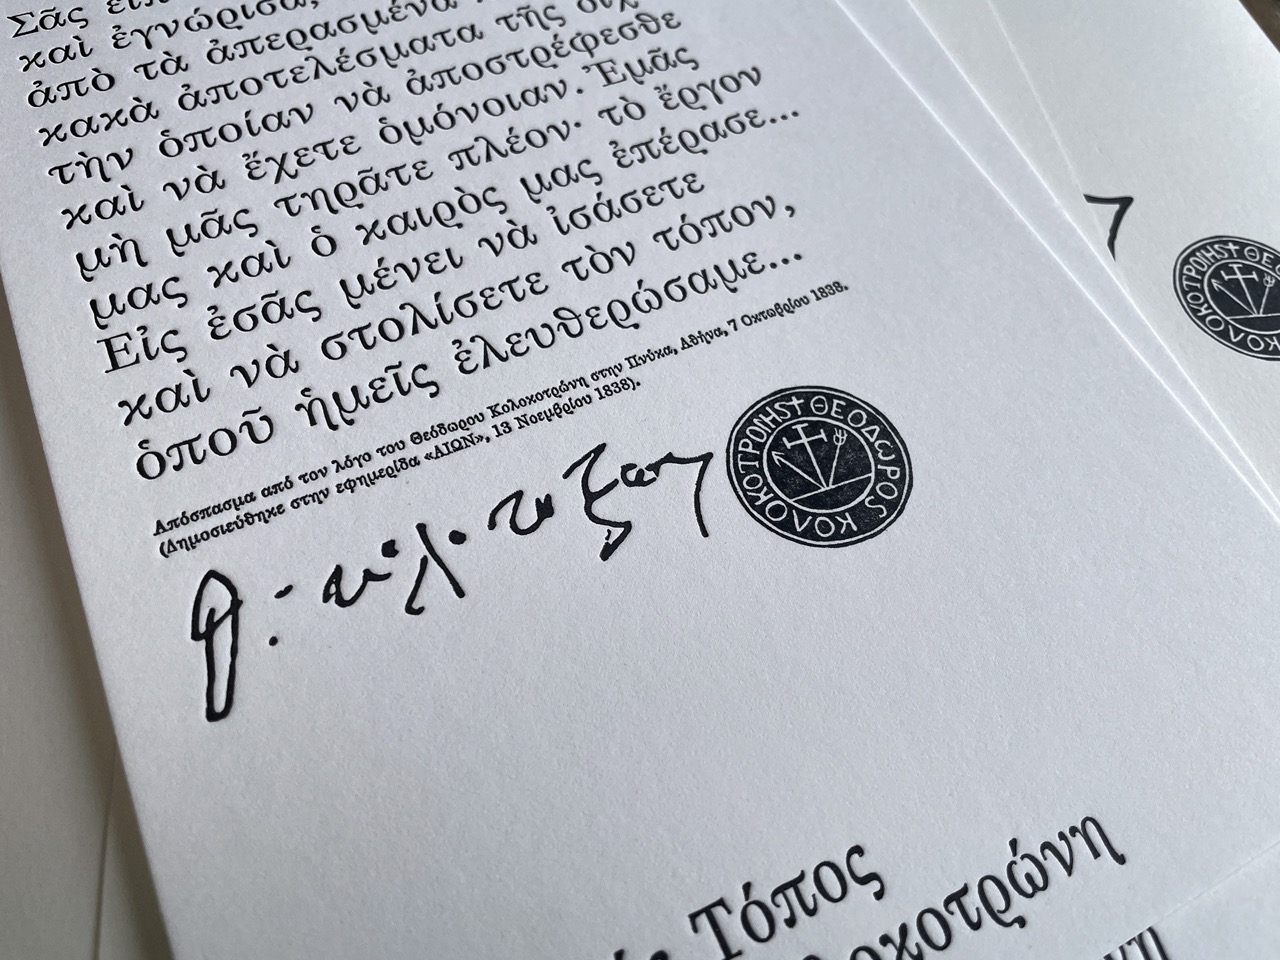 Σᾶς
καὶ ἐγνώρισα,
ἀπὸ τὰ ἀπερασμένα
κακὰ ἀποτελέσματα τῆς
τὴν ὁποίαν νὰ ἀποστρέφεσθε
καὶ νὰ ἔχετε ὁμόνοιαν. Ἐμᾶς
μὴ μᾶς τηρᾶτε πλέον· τὸ ἔργον
μας καὶ ὁ καιρὸς μας ἐπέρασε...
Εἰς ἐσᾶς μένει νὰ ἰσάσετε
καὶ νὰ στολίσετε τὸν τόπον,
ὁποῦ ἡμεῖς ἐλευθερώσαμε...
Απόσπασμα από τον λόγο του Θεόδωρου Κολοκοτρώνη στην Πνύκα, Αθήνα, 7 Οκτωβρίου 1838.
(Δημοσιεύθηκε στην εφημερίδα «ΑΙΩΝ», 13 Νοεμβρίου 1838).
ΘΕΟΔΩΡΟS ΚΟΛΟΚΟΤΡΟΙΗS
ΘΕΟ ΚΟΛΟΚΟΤΡΟΙΗS
Τόπος